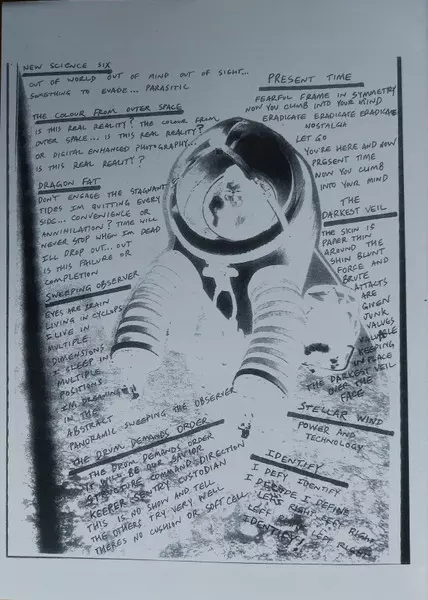 NEW SCIENCE SIX
OUT OF WORLD OUT OF MIND OUT OF SIGHT...
SOMETHING TO EVADE... PARASITIC
THE COLOUR FROM OUTER SPACE
IS THIS REAL REALITY? THE COLOUR FROM
OUTER SPACE... IS THIS REALITY?
OR DIGITAL ENHANCED PHOTOGRAPHY...
IS THIS REAL REALITY?
DRAGON FAT
DON'T ENGAGE THE STAGNANT
TIDES IM QUITTING EVERY
SIDE... CONVENIENCE OR
ANNIHILATION? TIME WILL
NEVER STOP WHEN IM DEAD
ILL DROP OUT... OUT
IS THIS FAILURE OR
COMPLETION
SWEEPING OBSERVER
EYES ARE
LIVING IN CYCLOPS
I LIVE IN
MULTIPLE
DIMENSIONS
I SLEEP IN
MULTIPLE
POSITIONS
IM DREAMING
IN THE
ABSTRACT
PANORAMIC SWEEPING THE OBSERVER
THE DRUM DEMANDS ORDER
THE DRUM DEMANDS ORDER
IT WILL BE OUR SAVIOR
STRUCTURE COMMAND DIRECTION
KEEPER SENTRY CUSTODIAN
THIS IS NO SHOW AND TELL
THE OTHERS TRY VERY WELL
THERES NO CUSHION OR SOFT CELL
PRESENT TIME
FEARFUL FRAME IN SYMMETRY
NOW YOU CLIMB INTO YOUR MIND
ERADICATE ERADICATE ERADICATE
NOSTALGIA
LET GO
YOU'RE HERE AND NOW
PRESENT TIME
NOW YOU CLIMB
INTO YOUR MIND
THE
DARKEST VEIL
THE SKIN IS
PAPER THIN
AROUND THE
SHIN BLUNT
FORCE AND
BRUTE
ATTACTS
ARE
GIVEN
JUNK
VALUES
VALUABLE
KEEPING
IN PLACE
THE DARKEST VEIL
OVER THE
FACE
STELLAR WIND
POWER AND
TECHNOLOGY
IDENTIFY
I DEFY IDENTIFY
I DECIDE I DEFINE
LEFT RIGHT LEFT RIGHT
LEFT RIGHT LEFT RIGHT
IDENTIFY!